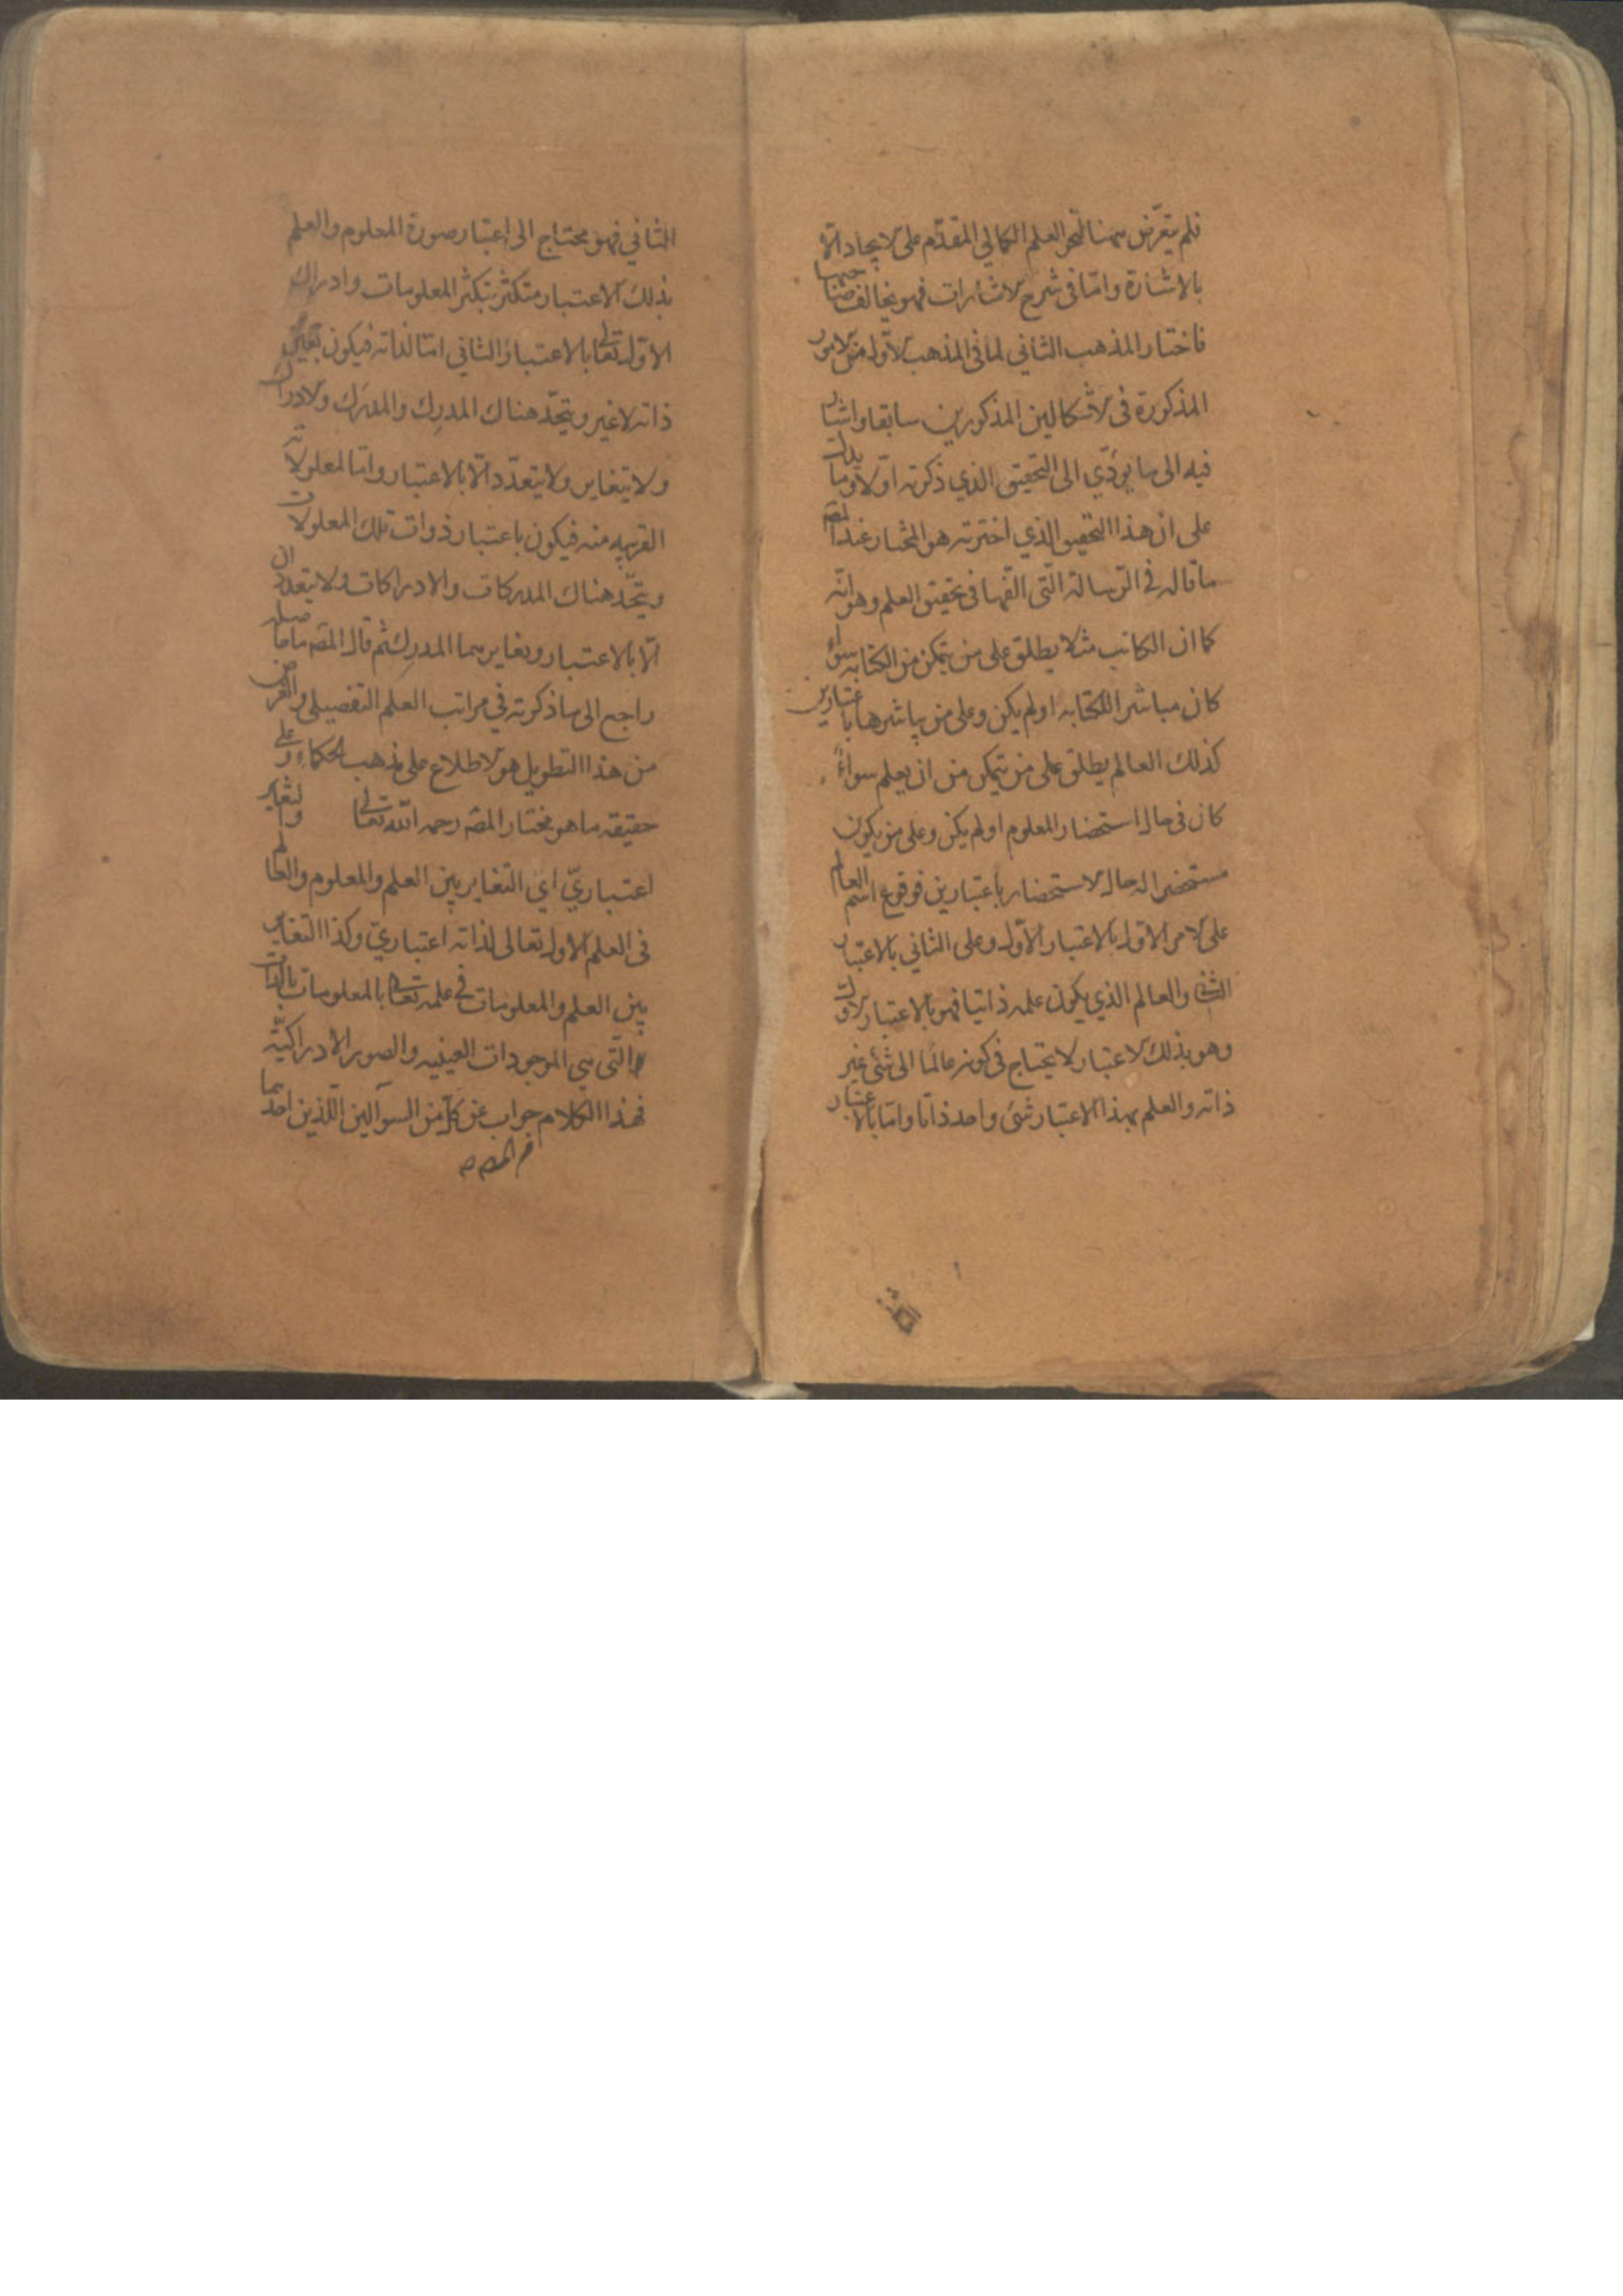 فلم يتعرّض ههنا لنحو العلم الكمالي المقدّم على الايجاد الّا
بالاشارة وامّا في شرح الاشارات فهو يخالف صاحبها
فاختار المذهب الثاني لما في المذهب الاوّل من الامور
المذكورة في الاشكالين المذكورين سابقا واشار
فيه الى ما يؤدّي الى التحقيق الذي ذكرته اوّلا وما يدلّ
على ان هذا التحقيق الذي اخترته هو المختار عند المصه
ما قاله في الرّسالة الّتي الّفها في تحقيق العلم وهو انّه
كما ان الكاتب مثلا يطلق على من يتمكن من الكتابه سواء
كان مباشرا للكتابه او لم يكن وعلى من يباشرها باعتبارين
كذلك العالم يطلق على من يتمكن من ان يعلم سواءً
كان في حال استحضار المعلوم او لم يكن وعلى من يكون
مستحضرا له حال الاستحضار باعتبارين فوقوع اسم العالم
على الامر الاوّل بالاعتبار الاوّل وعلى الثاني بالاعتبار
الثاني والعالم الذي يكون علمه ذاتيا فهو بالاعتبار الاوّل
وهو بذلك الاعتبار لا يحتاج في كونه عالمًا الى شئ غير
ذاته والعلم بهذا الاعتبار شئ واحد ذاتا وامّا بالاعتبار
الثاني فهو محتاج الى اعتبار صورة المعلوم والعلم
بذلك الاعتبار متكثر بتكثر المعلومات وادراك
الاوّل تعالى بالاعتبار الثاني امّا لذاته فيكون بعين
ذاته لا غير ويتحّد هناك المدرِك والمدرَك والادراك
ولا يتغاير ولا يتعدّد الّا بالاعتبار وامّا لمعلولاته
القريبه منه فيكون باعتبار ذوات تلك المعلولات
ويتحّد هناك المدركات والادراكات ولا يتعددان
الّا بالاعتبار ويغايرهما المدرِك ثم قال المصه ما حاصله
راجع الى ما ذكرته في مراتب العلم التفصيلى والغرض
من هذا التطويل هو الاطلاع على مذهب الحكماء وعلى
حقيقة ما هو مختار المصه رحمه الله تعالى والتغاير
اعتباريّ اي التغاير بين العلم والمعلوم والعالم
في العلم الاول تعالى لذاته اعتباريّ وكذا التغاير
بين العلم والمعلومات في علمه تعالى بالمعلومات بالذات
الّتي هي الموجودات العينيه والصور الادراكيّه
فهذا الكلام جواب عن كل من السوآلين اللّذين احدهما